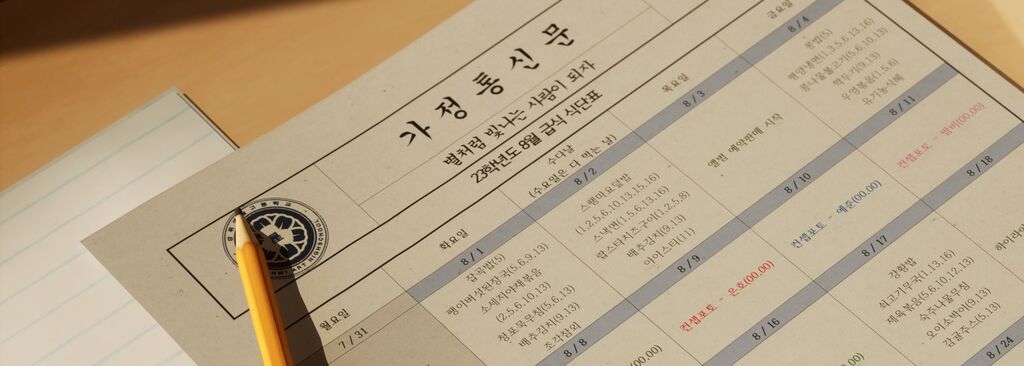 가정통신문
별처럼 빛나는 사람이 되자
23학년도 8월 급식 식단표
월요일
화요일
수다날
(수요일은 다 먹는 날)
목요일
금요일
7 / 31
8 / 1
8 / 2
8 / 3
8 / 4
잡곡밥(5)
팽이버섯된장국(5,6,9,13)
소세지야채볶음
(2,5,6,10,13)
청포묵무침(5,6,13)
배추김치(9,13)
조각참외
스팸마요덮밥
(1,2,5,6,10,13,15,16)
스냉면(1,5,6,13,16)
랍스타치즈구이(1,2,5,8)
배추김치(9,13)
아이스티(11)
앨범 예약판매 시작
콩밥(5)
평양냉면(1,3,5,6,13,16)
콩나물불고기(5,6,10,13)
깍두기(9,13)
우엉볶음(1,5,6)
유기농식혜
8 / 8
8 / 9
8 / 10
8 / 11
(00.00)
컨셉포토 - 은호(00.00)
컨셉포토 - 예준(00.00)
컨셉포토 - 밤비(00.00)
8 / 16
8 / 17
8 / 18
(00.00)
강황밥
쇠고기무국(1,13,16)
제육볶음(5,6,10,12,13)
숙주나물무침
오이소박이(9,13)
감귤주스(5,13)
하이라이
8 / 24